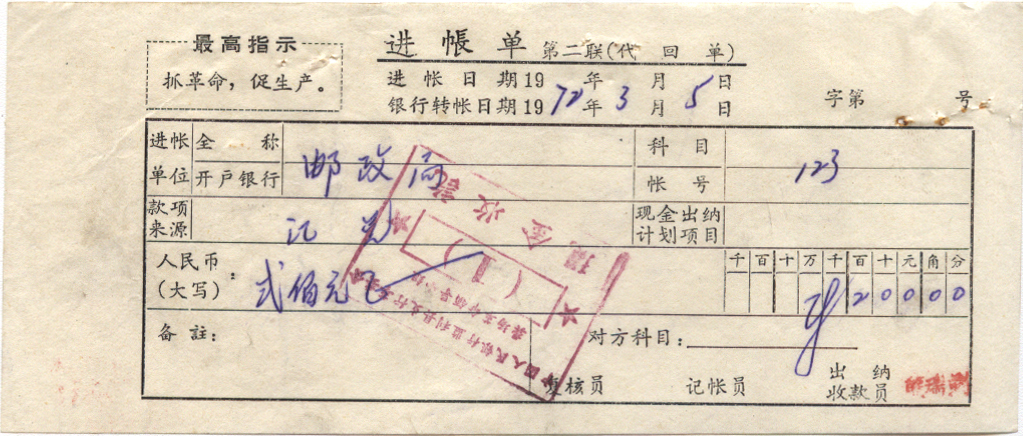 最高指示
抓革命，促生产。
进帳单 第二联(代回单)
进帐日期19 年 月 日
银行转帐日期1972年3月5日
字第 号
进帐单位 全称 邮政局 科目 123
开户银行 帐号
款项来源 汇兑 现金出纳计划项目
人民币(大写)： 弍佰元 千百十万千百十元角分
20000
备註：
对方科目：
复核员 记帐员 出纳收款员
现金收讫
(1)
中国人民银行监利县支行